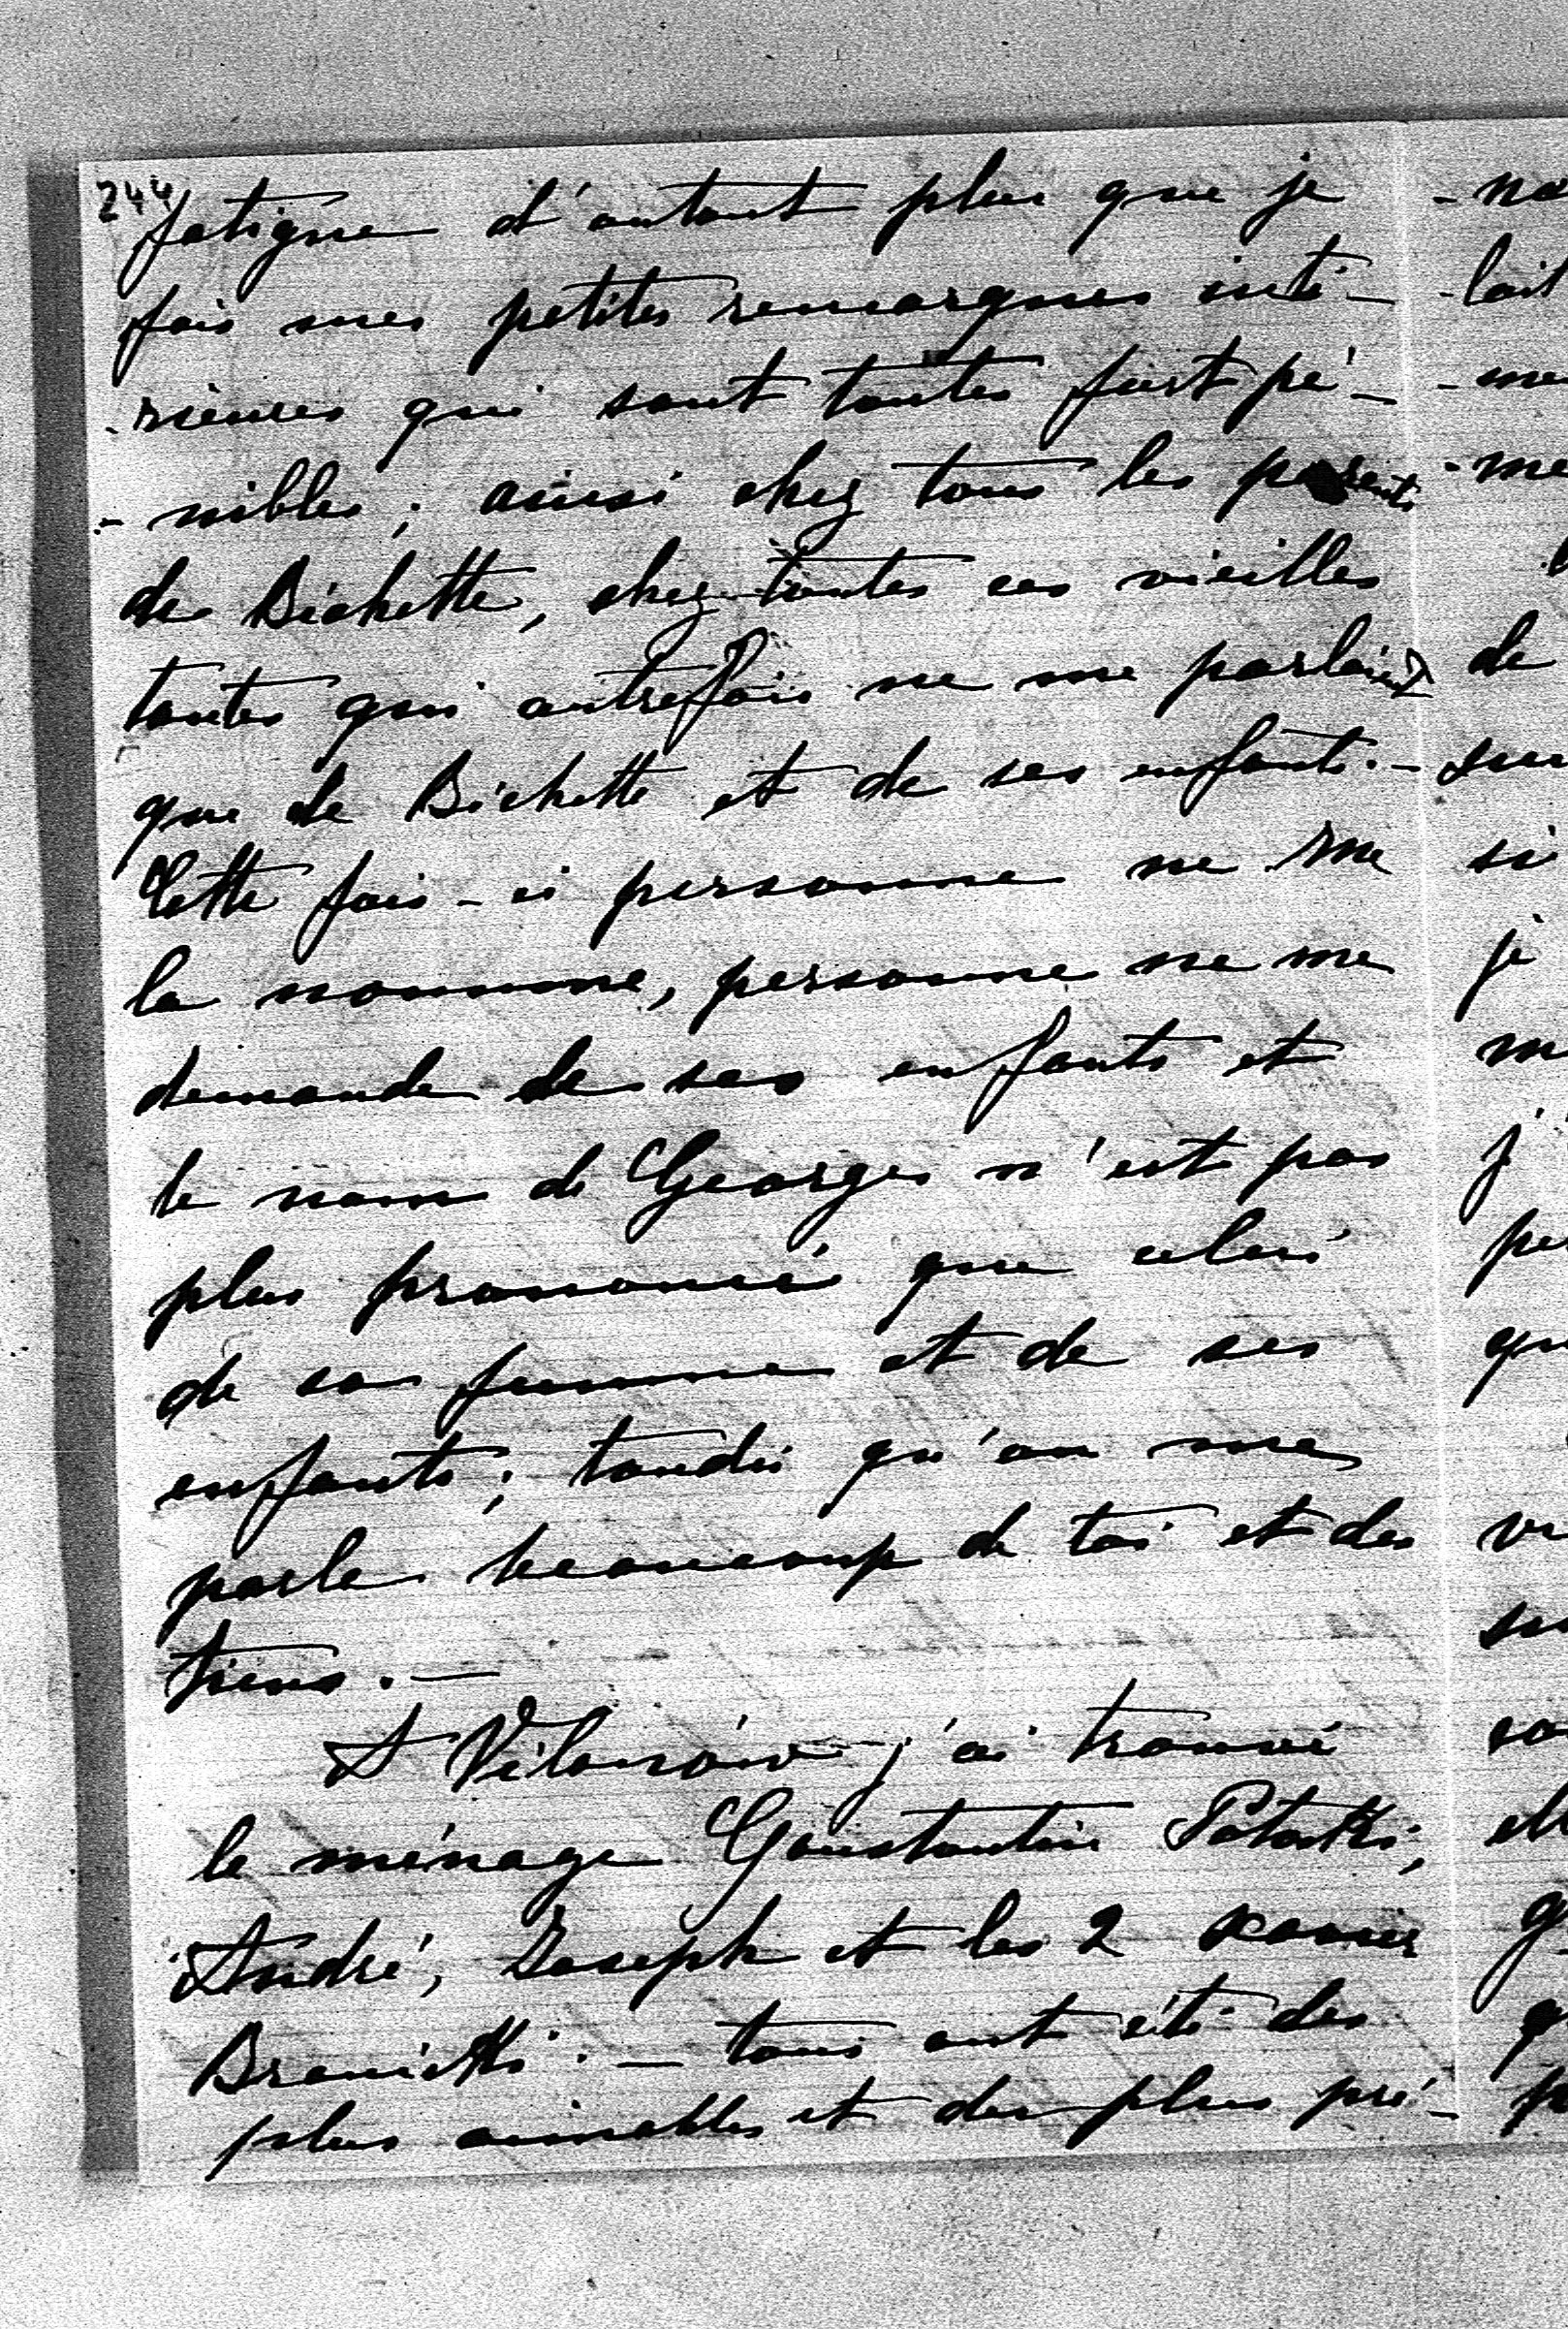 244
fatigue d'autant plus que je
fais mes petites remarques inté-
-rieures qui sont toutes fort pé-
-nibles; ainsi chez tous les parents
de Bichette, chez toutes ces vieilles
tantes qui autrefois ne me parlaient
que de Bichette et de ses enfants. -
Cette fois-ci personne ne me
la nomme, personne ne me
demande de ses enfants et
le nom de Georges n'est pas
plus prononcé que celui
de sa femme et de ses
enfants; tandis qu'on me
parle beaucoup de toi et des
tiens. -
A Vilanów j'ai trouvé
le ménage Constantin Potocki;
André, Joseph et les 2 Xavier
Branicki. - tous ont été des
plus aimables et des plus pré-